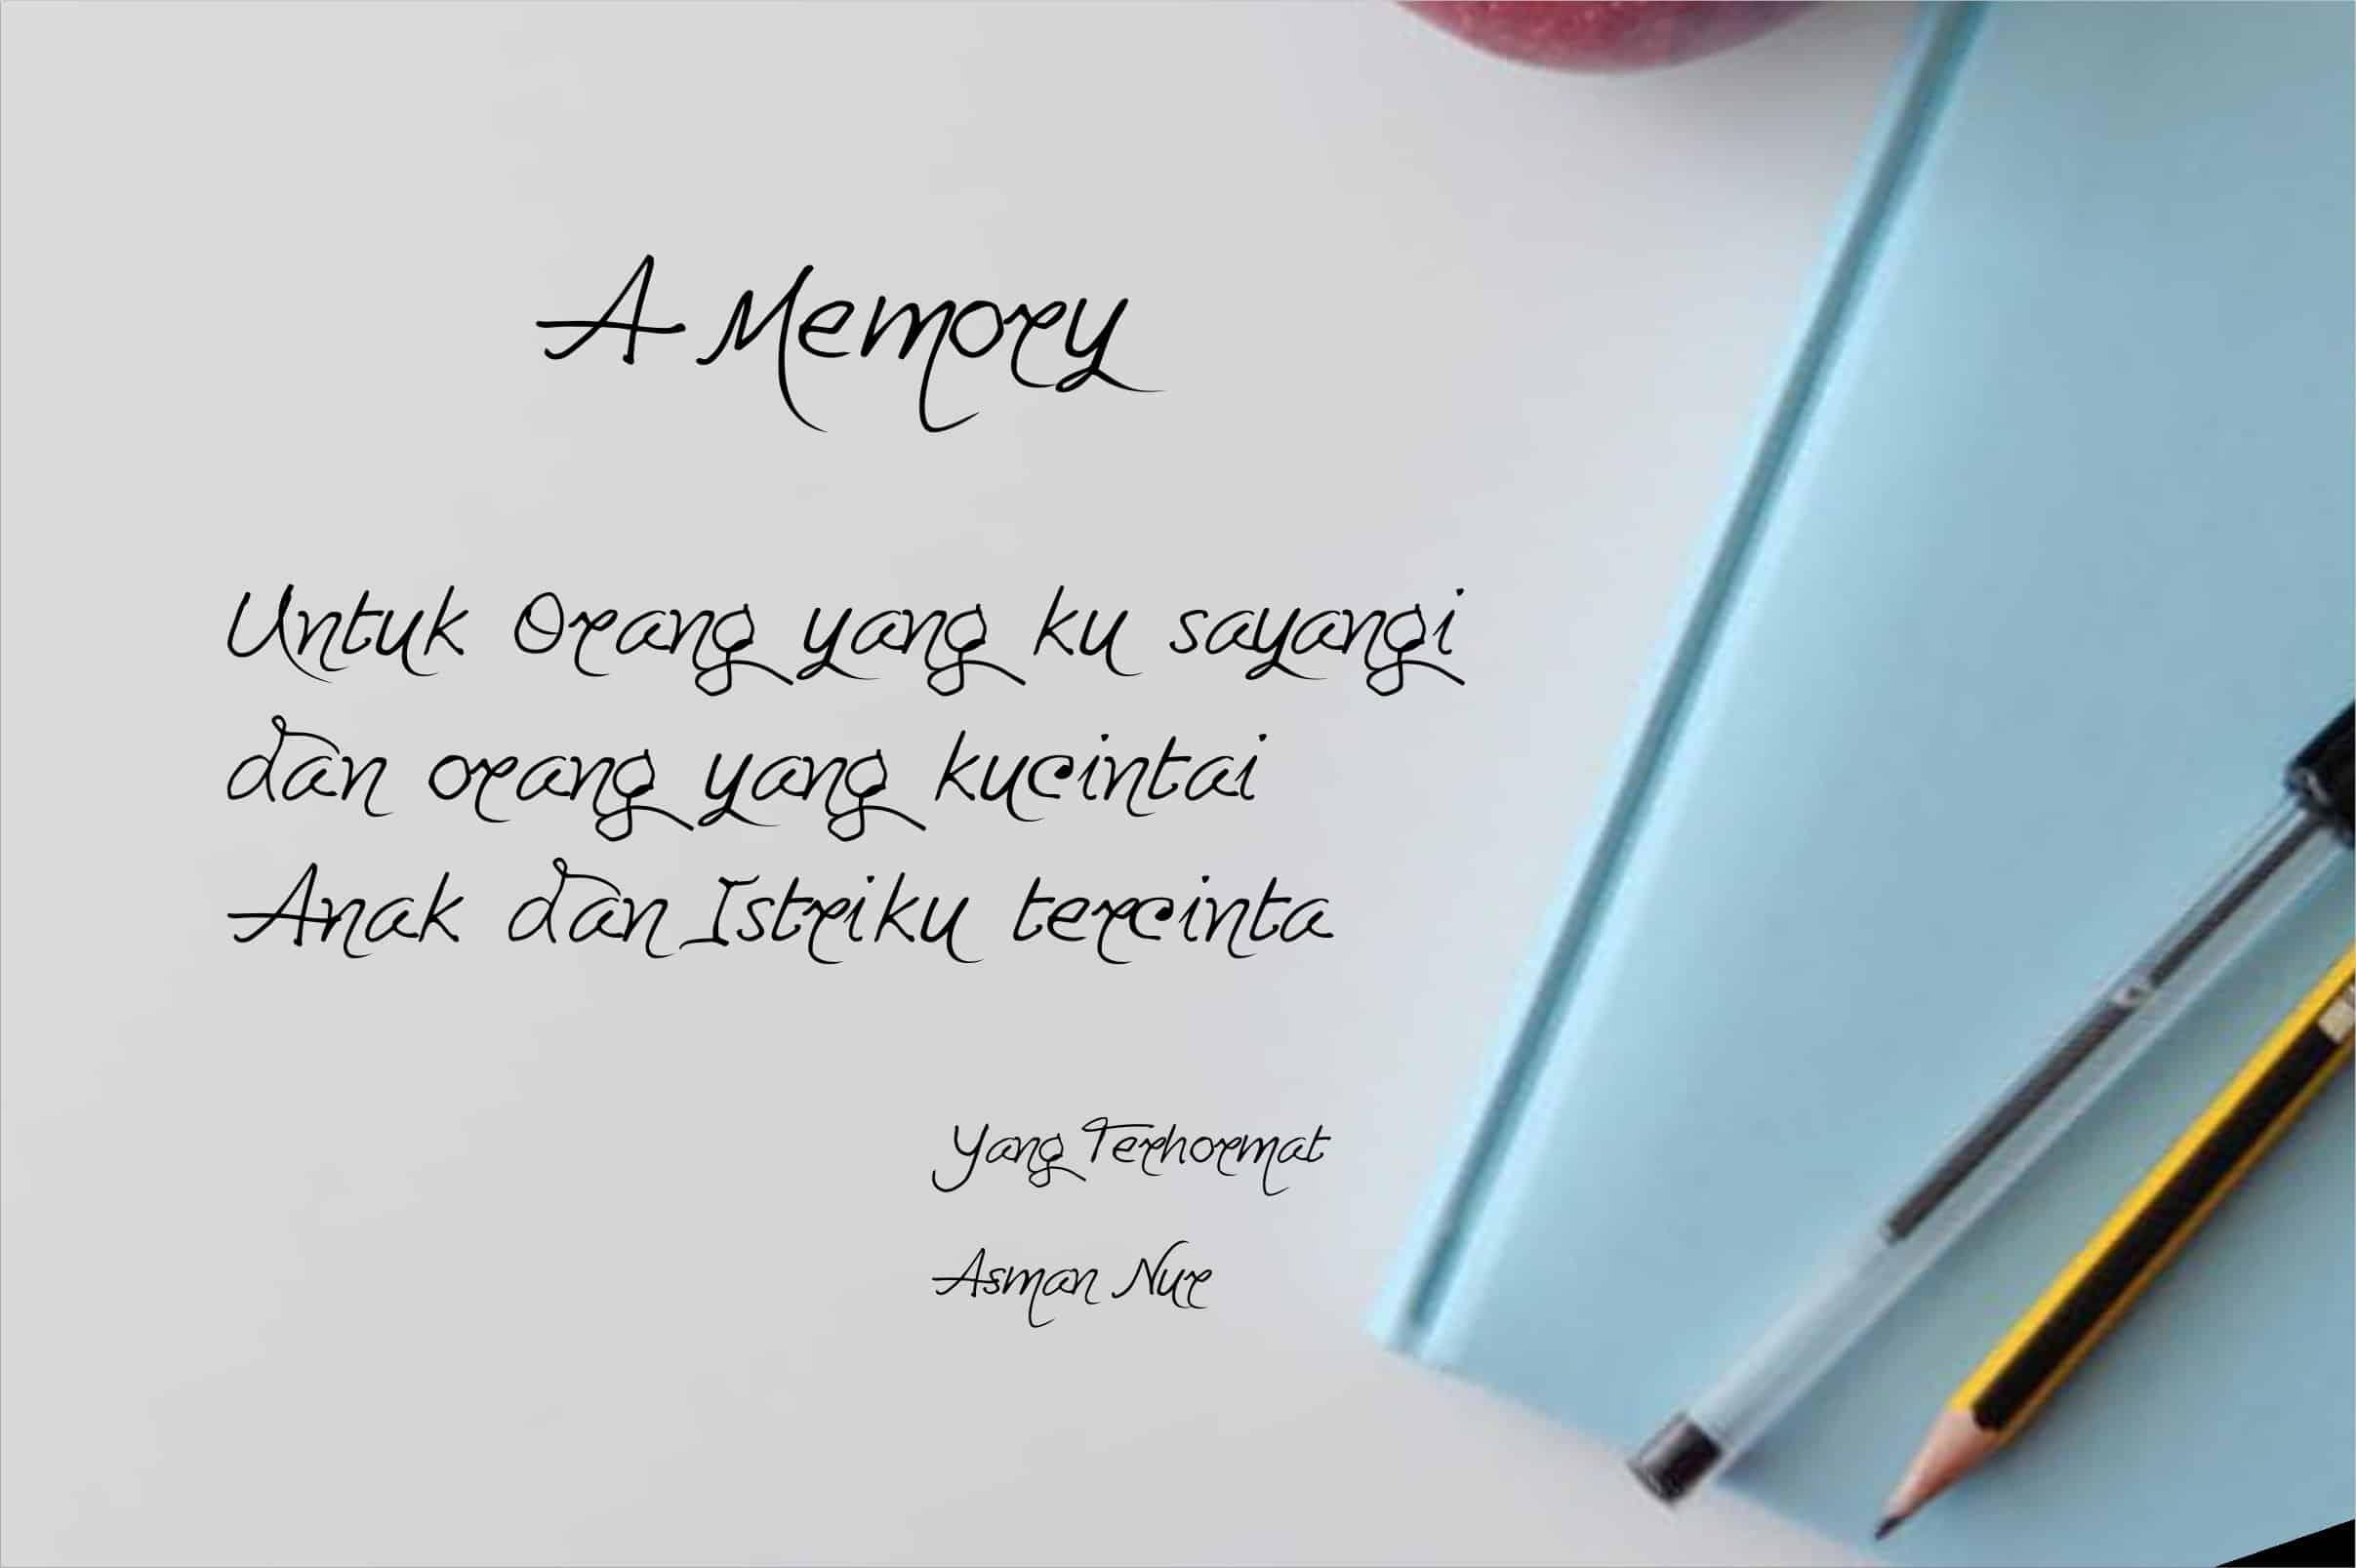 A Memory
Untuk Orang yang ku sayangi
dan orang yang kucintai
Anak dan Istriku tercinta
Yang Terhormat
Asman Nur